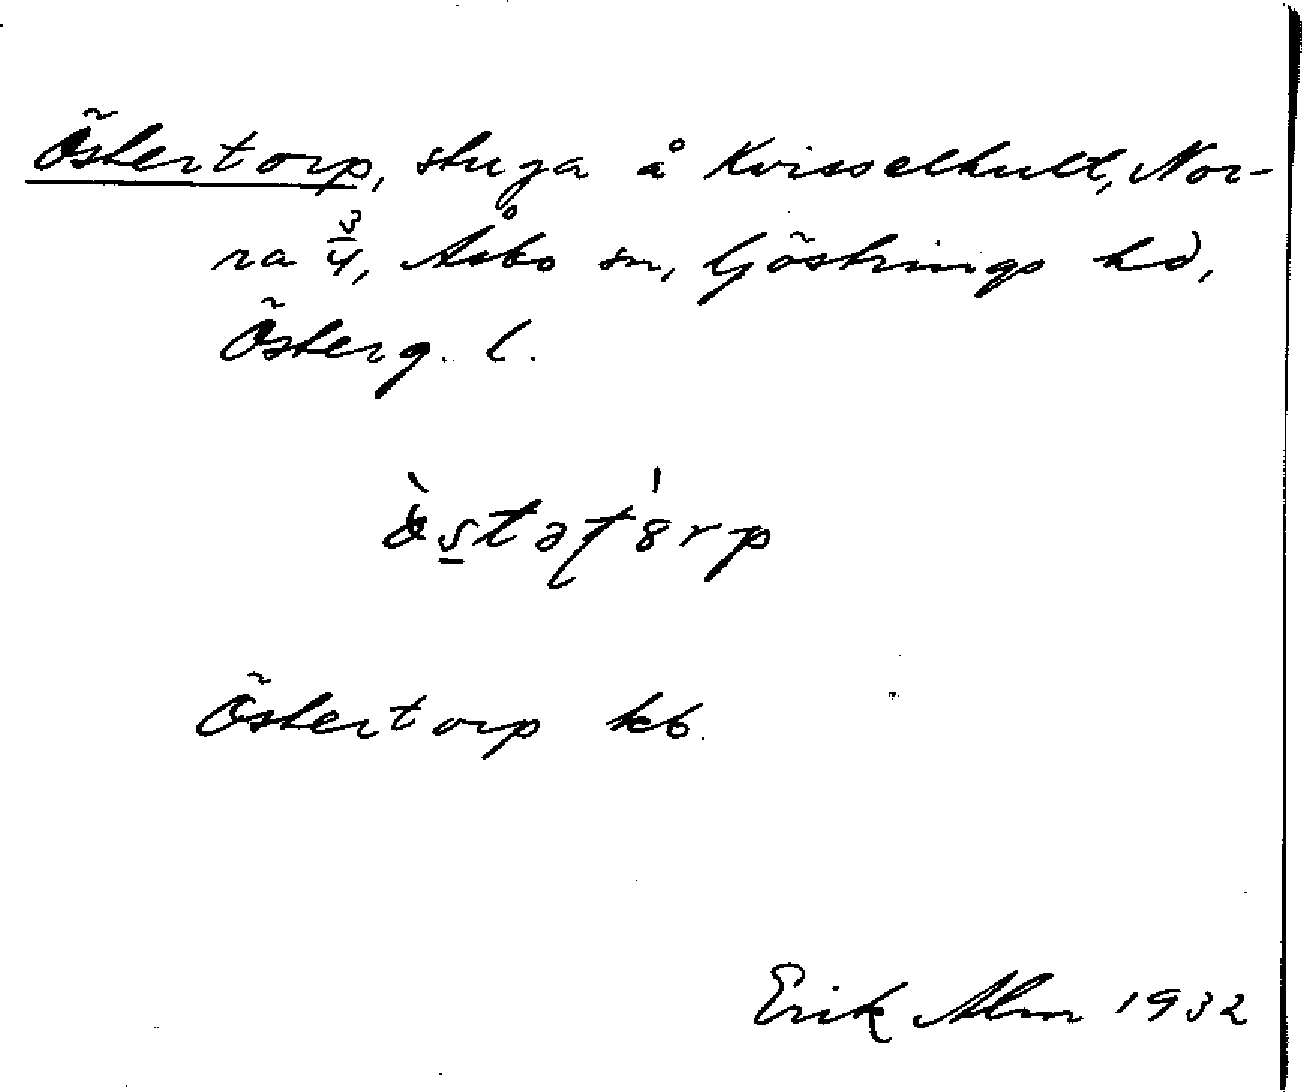 Östertorp, stuga å Kvisselhult, Nor-
ra 3/4, Åsbo sn, Göstrings hd,
Österg. l.
Östertorp kb.
Erik Alm 1932